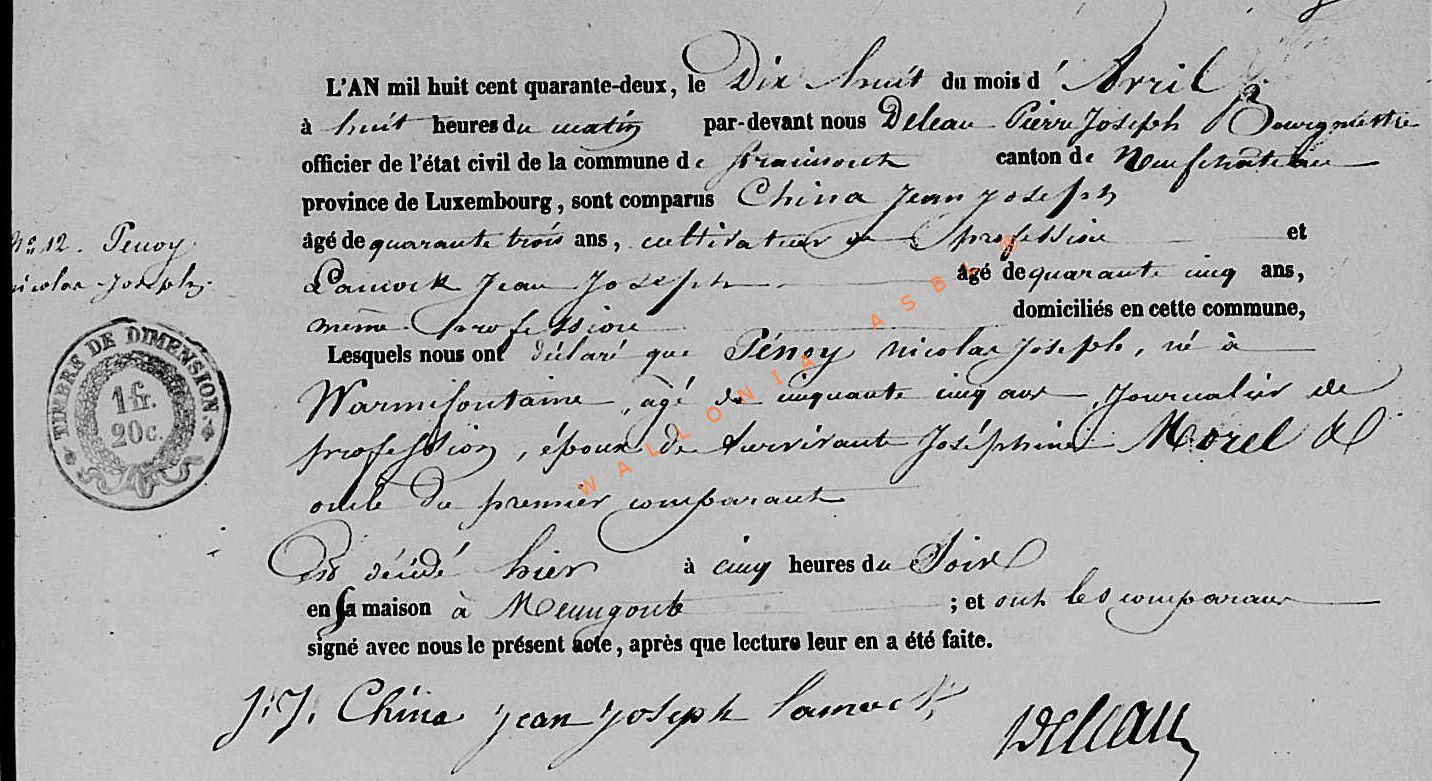 L'AN mil huit cent quarante-deux, le Dix huit du mois d' Avril
à huit heures du matin par-devant nous Deleau Pierre Joseph Bourgmestre
officier de l'état civil de la commune de Straimont canton de Neufchateau
province de Luxembourg, sont comparus China Jean Joseph
No. 12. Penoy
âgé de quarante trois ans, cultivateur de profession et
nicolas Joseph.
Lamock Jean Joseph âgé de quarante cinq ans,
même profession domiciliés en cette commune,
Lesquels nous ont déclaré que Pénoy nicolas Joseph, né à
TIMBRE DE DIMENSION.
1 fr.
20 c.
Warmifontaine, agé de cinquante cinq ans, Journalier de
profession, époux de Survivante Joséphine Morel &
oncle du premier comparant
Est décédé hier à cinq heures du Soir
en sa maison à Menugoutte ; et ont les comparans
signé avec nous le présent acte, après que lecture leur en a été faite.
J. J. China Jean Joseph Lamock
Deleau
WALLONIA ASBL ®